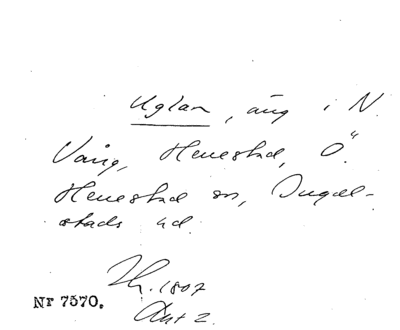 Uglan, äng i N.
Vång, Herrestad, Ö.
Herrestad sn, Ingel-
stads hd.
Th. 1807
Akt 2.
Nr 7570.